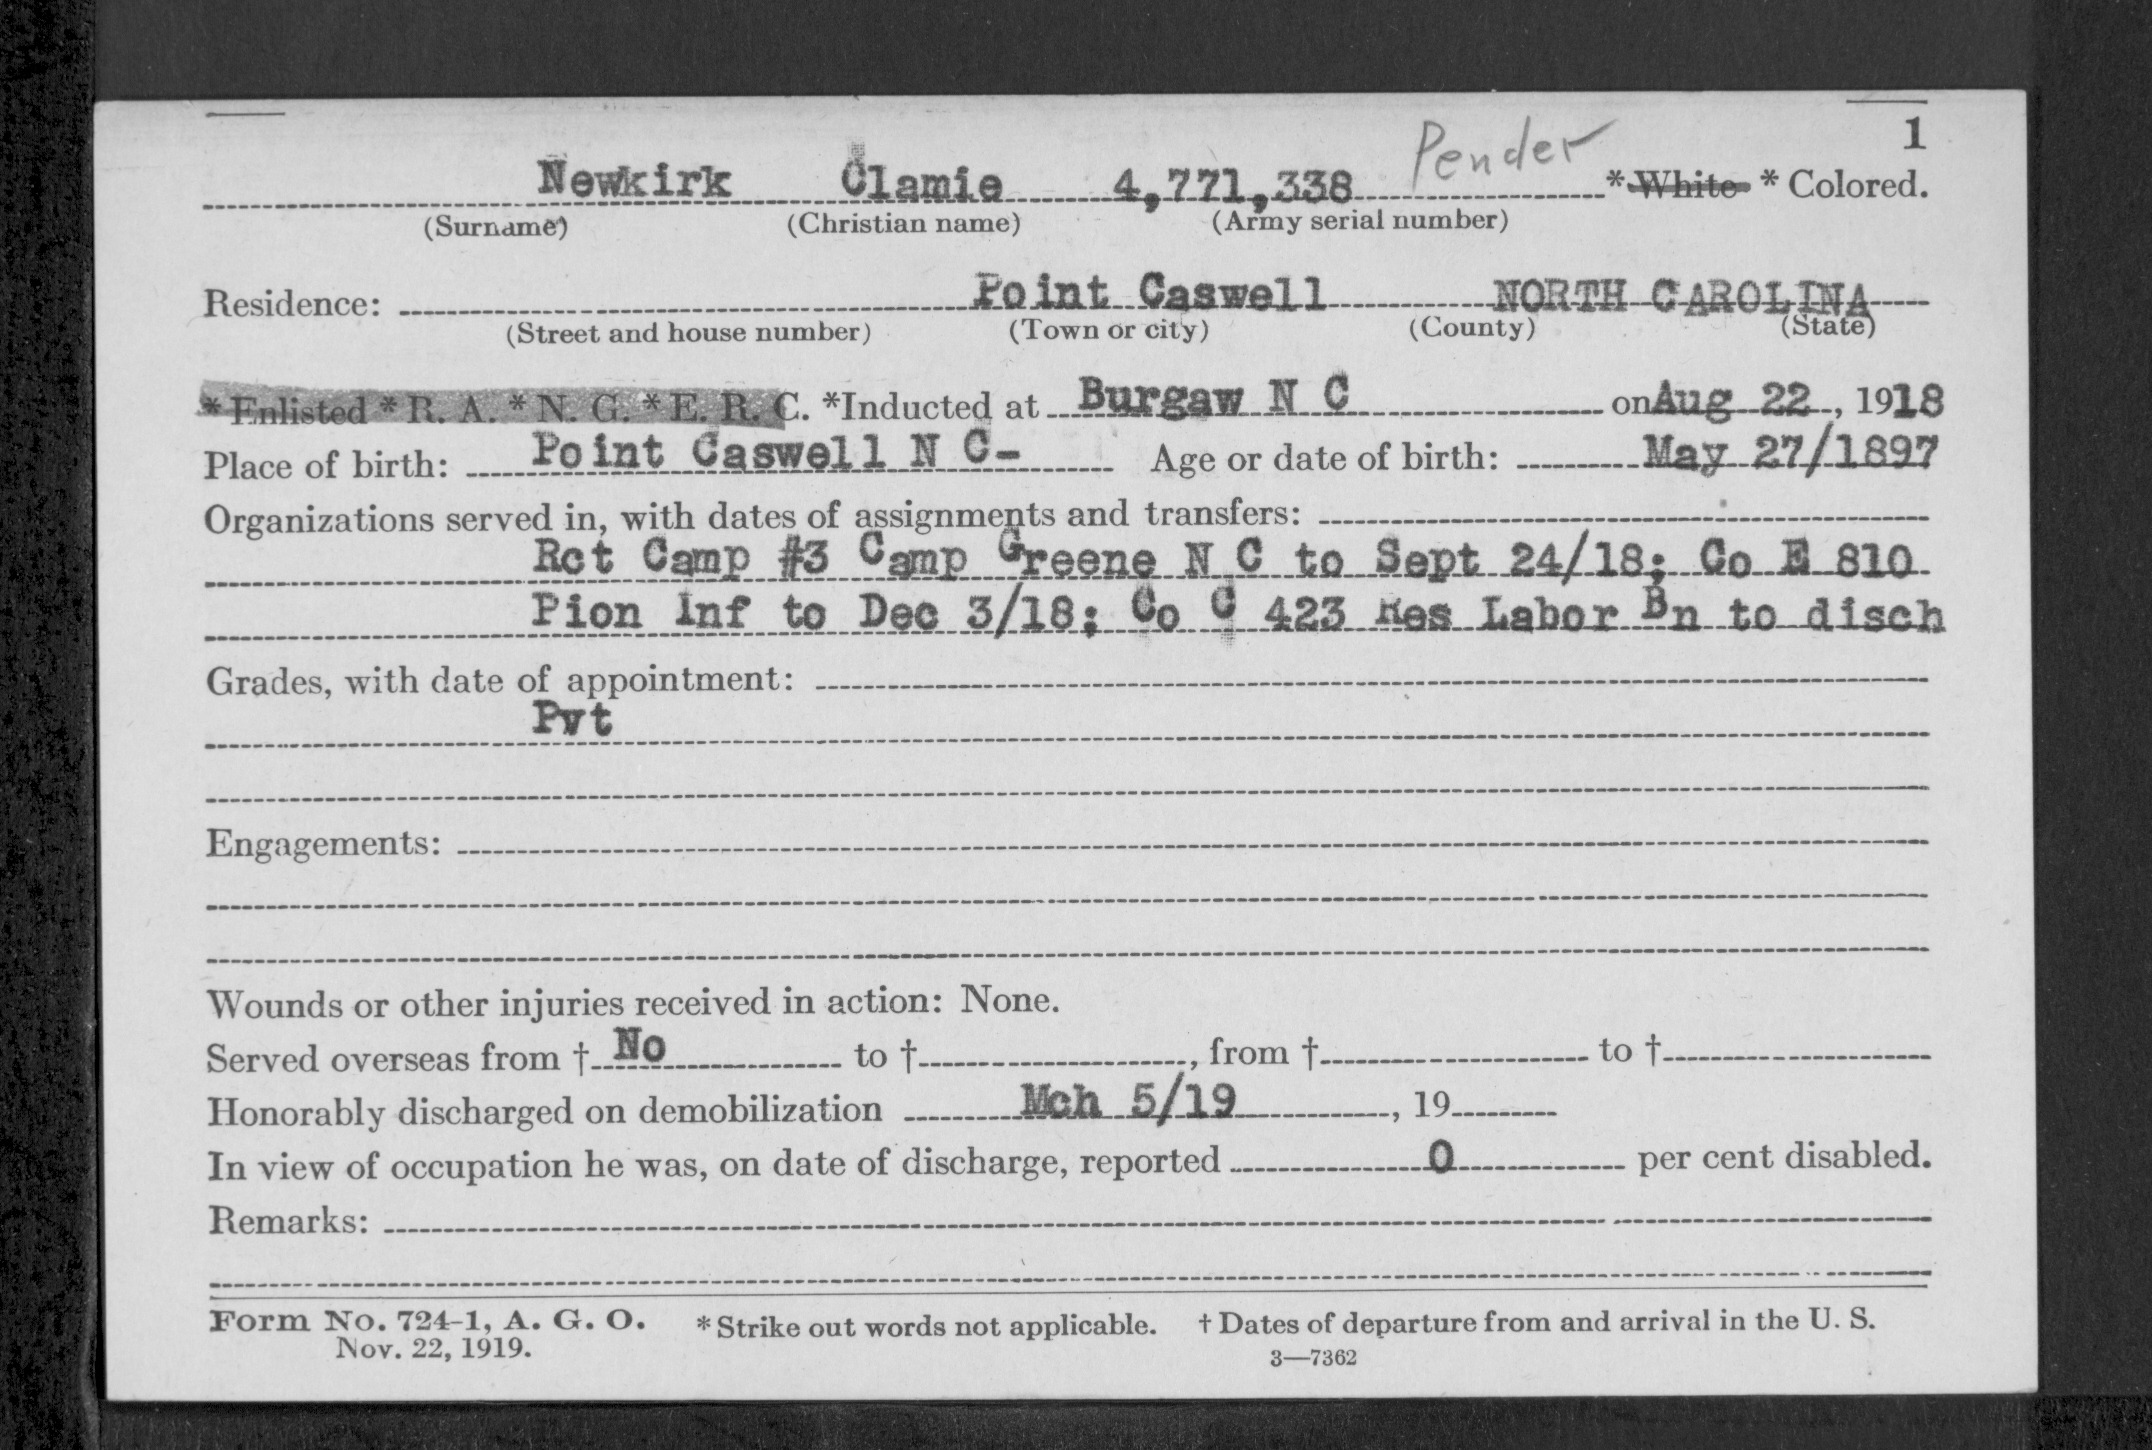 Pender
1
Newkirk Clamie 4,771,338 * White * Colored.
(Surname) (Christian name) (Army serial number)
Residence: Point Caswell NORTH CAROLINA
(Street and house number) (Town or city) (County) (State)
* Enlisted * R. A. * N. G. * E. R. C. *Inducted at Burgaw N C on Aug 22, 1918
Place of birth: Point Caswell N C- Age or date of birth: May 27/1897
Organizations served in, with dates of assignments and transfers:
Rct Camp #3 Camp Greene N C to Sept 24/18; Co E 810
Pion Inf to Dec 3/18; Co C 423 Res Labor Bn to disch
Grades, with date of appointment:
Pvt
Engagements:
Wounds or other injuries received in action: None.
Served overseas from † No to †, from † to †
Honorably discharged on demobilization Mch 5/19, 19
In view of occupation he was, on date of discharge, reported 0 per cent disabled.
Remarks:
Form No. 724-1, A. G. O. * Strike out words not applicable. † Dates of departure from and arrival in the U. S.
Nov. 22, 1919. 3—7362